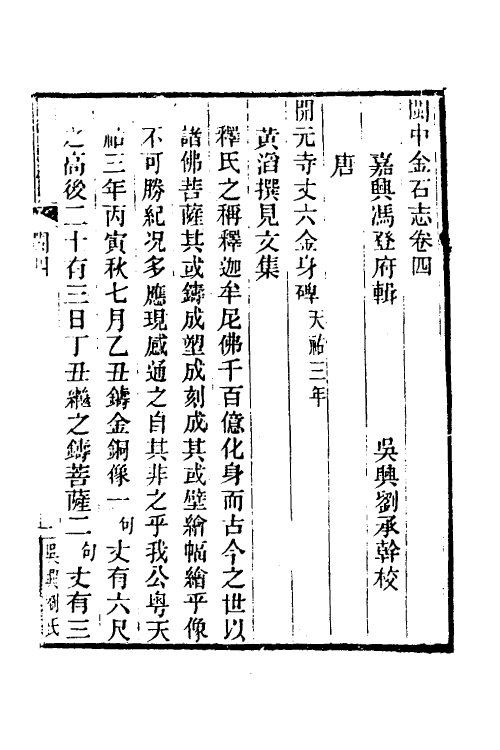 閩中金石志卷四
嘉興馮登府輯 吳興劉承幹校
唐
開元寺丈六金身碑 天祐三年
黃滔撰見文集
釋氏之稱釋迦牟尼佛千百億化身而古今之世以
諸佛菩薩其或鑄成塑成刻成其或壁繪幅繪乎像
不可勝紀況多應現感通之自其非之乎我公粵天
祐三年丙寅秋七月乙丑鑄金銅像一句丈有六尺
之高後二十有三日丁丑繼之鑄菩薩二句丈有三
閩四
一
吳興劉氏